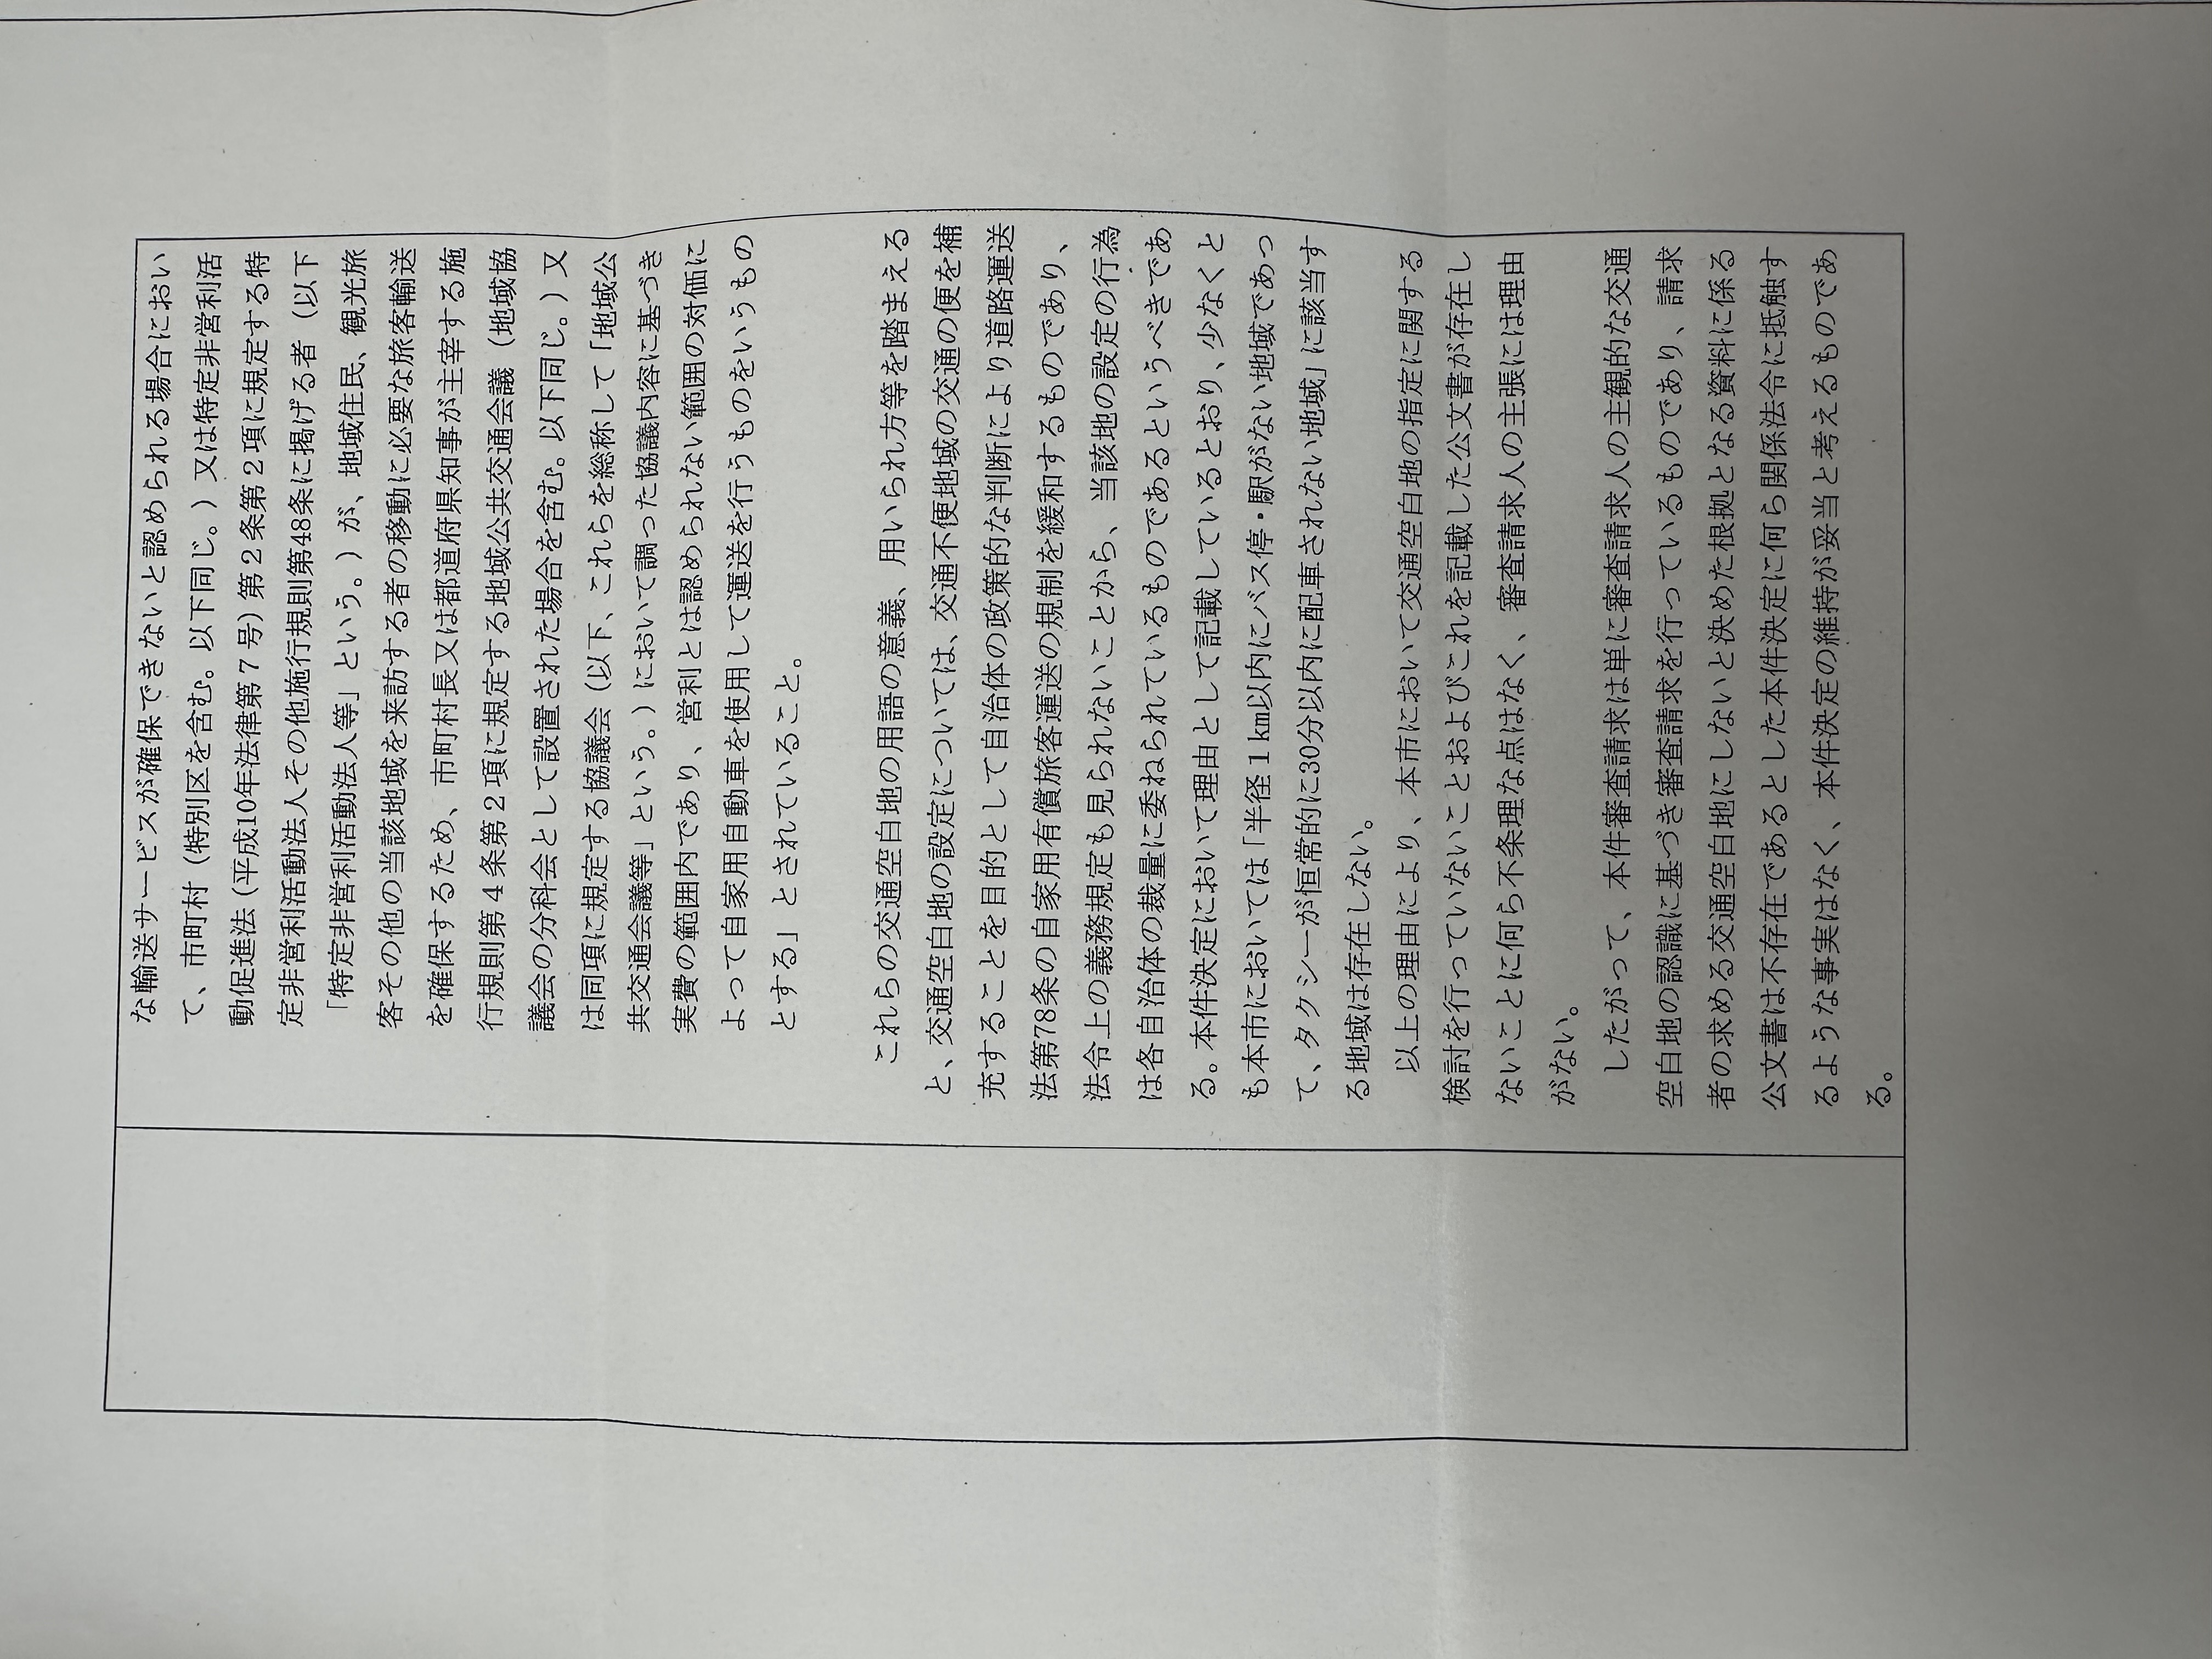 な輸送サービスが確保できないと認められる場合におい
て、市町村（特別区を含む。以下同じ。）又は特定非営利活
動促進法（平成10年法律第７号）第２条第２項に規定する特
定非営利活動法人その他施行規則第48条に掲げる者（以下
「特定非営利活動法人等」という。）が、地域住民、観光旅
客その他の当該地域を来訪する者の移動に必要な旅客輸送
を確保するため、市町村長又は都道府県知事が主宰する施
行規則第４条第２項に規定する地域公共交通会議（地域協
議会の分科会として設置された場合を含む。以下同じ。）又
は同項に規定する協議会（以下、これらを総称して「地域公
共交通会議等」という。）において調った協議内容に基づき
実費の範囲内であり、営利とは認められない範囲の対価に
よって自家用自動車を使用して運送を行うものをいうもの
とする」とされていること。
これらの交通空白地の用語の意義、用いられ方等を踏まえる
と、交通空白地の設定については、交通不便地域の交通の便を補
充することを目的として自治体の政策的な判断により道路運送
法第78条の自家用有償旅客運送の規制を緩和するものであり、
法令上の義務規定も見られないことから、当該地の設定の行為
は各自治体の裁量に委ねられているものであるというべきであ
る。本件決定において理由として記載しているとおり、少なくと
も本市においては「半径１㎞以内にバス停・駅がない地域であっ
て、タクシーが恒常的に30分以内に配車されない地域」に該当す
る地域は存在しない。
以上の理由により、本市において交通空白地の指定に関する
検討を行っていないことおよびこれを記載した公文書が存在し
ないことに何ら不条理な点はなく、審査請求人の主張には理由
がない。
したがって、本件審査請求は単に審査請求人の主観的な交通
空白地の認識に基づき審査請求を行っているものであり、請求
者の求める交通空白地にしないと決めた根拠となる資料に係る
公文書は不存在であるとした本件決定に何ら関係法令に抵触す
るような事実はなく、本件決定の維持が妥当と考えるものであ
る。